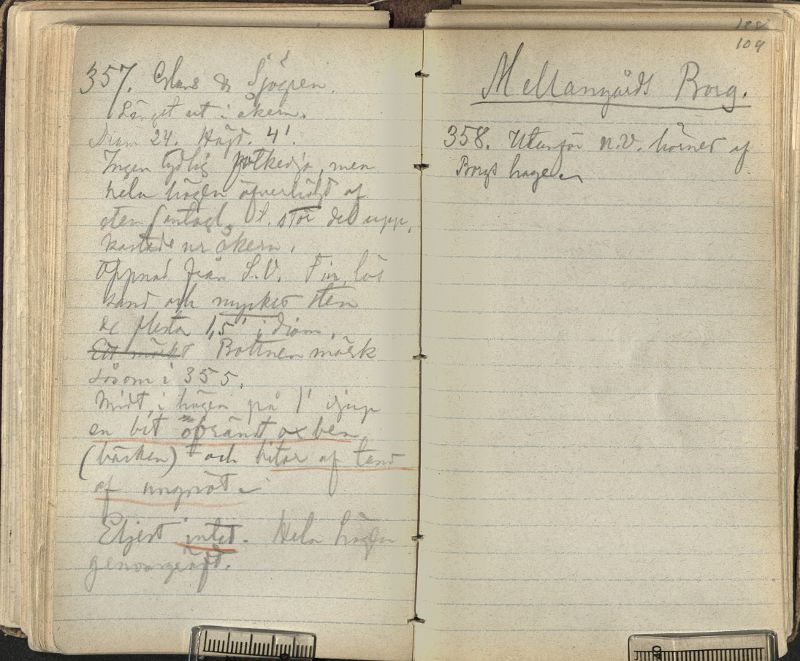 357. Sjögen.
Längst ut i åkern.
Diam 24. Höjd. 4'.
Ingen tydlig fotkedja, men
hela högen öfverhöljt af
sten S. stor del upp,
kastade ur åkern.
Öppnad från S.V. Fin, lös
sand och mycket sten
de flesta 1,5' i diam.
Ett mörkt Bottnen mörk
såsom i 355.
Midt i högen på 1' djup
en bit obrändt oxben
(bäcken) och bitar af tand
af ungnöt.
Eljest intet. Hela högen
genomgräft.
188
109
Mellangårds Borg.
358. Utanför N.V. hörnet af
Borgs hage